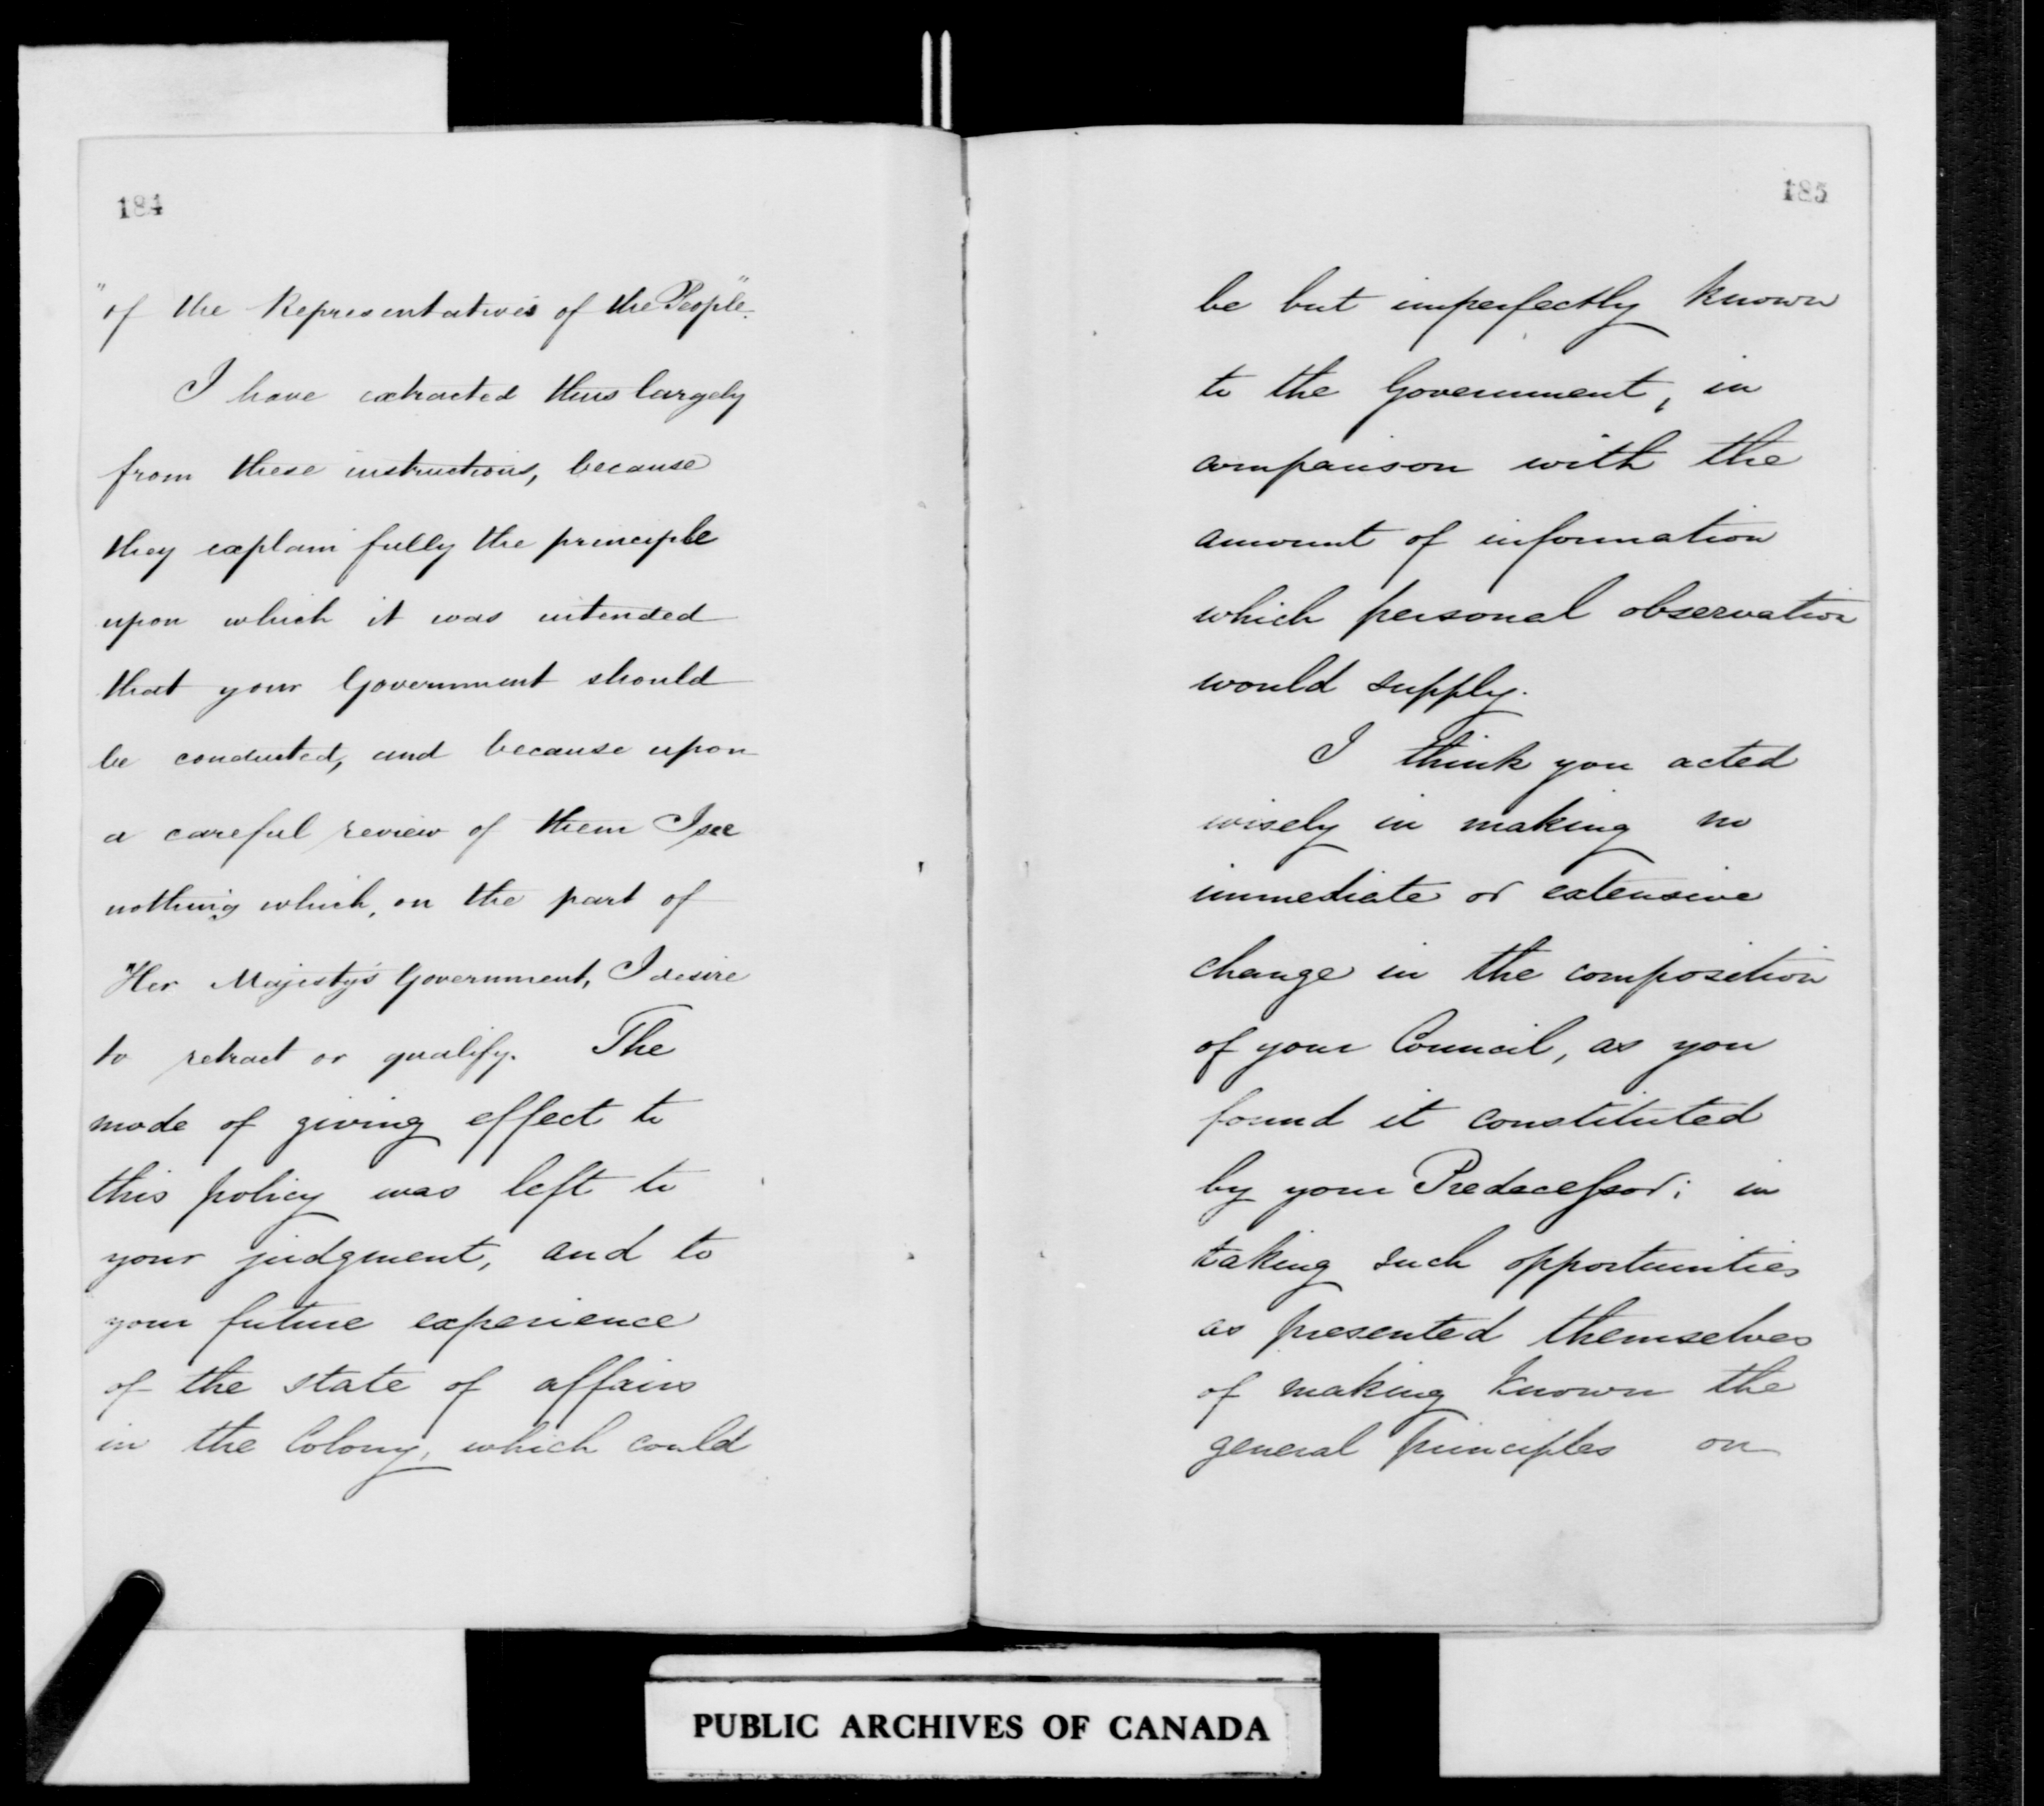 184
"of the Representatives of the People."
I have extracted thus largely
from these instructions, because
they explain fully the principle
upon which it was intended
that your Government should
be conducted, and because upon
a careful review of them I see
nothing which, on the part of
Her Majesty's Government, I desire
to retract or qualify. The
mode of giving effect to
this policy was left to
your judgment, and to
your future experience
of the state of affairs
in the Colony, which could
185
be but imperfectly known
to the Government, in
comparison with the
amount of information
which personal observation
would supply.
I think you acted
wisely in making no
immediate or extensive
change in the composition
of your Council, as you
found it constituted
by your Predecessor; in
taking such opportunities
as presented themselves
of making known the
general principles on
PUBLIC ARCHIVES OF CANADA